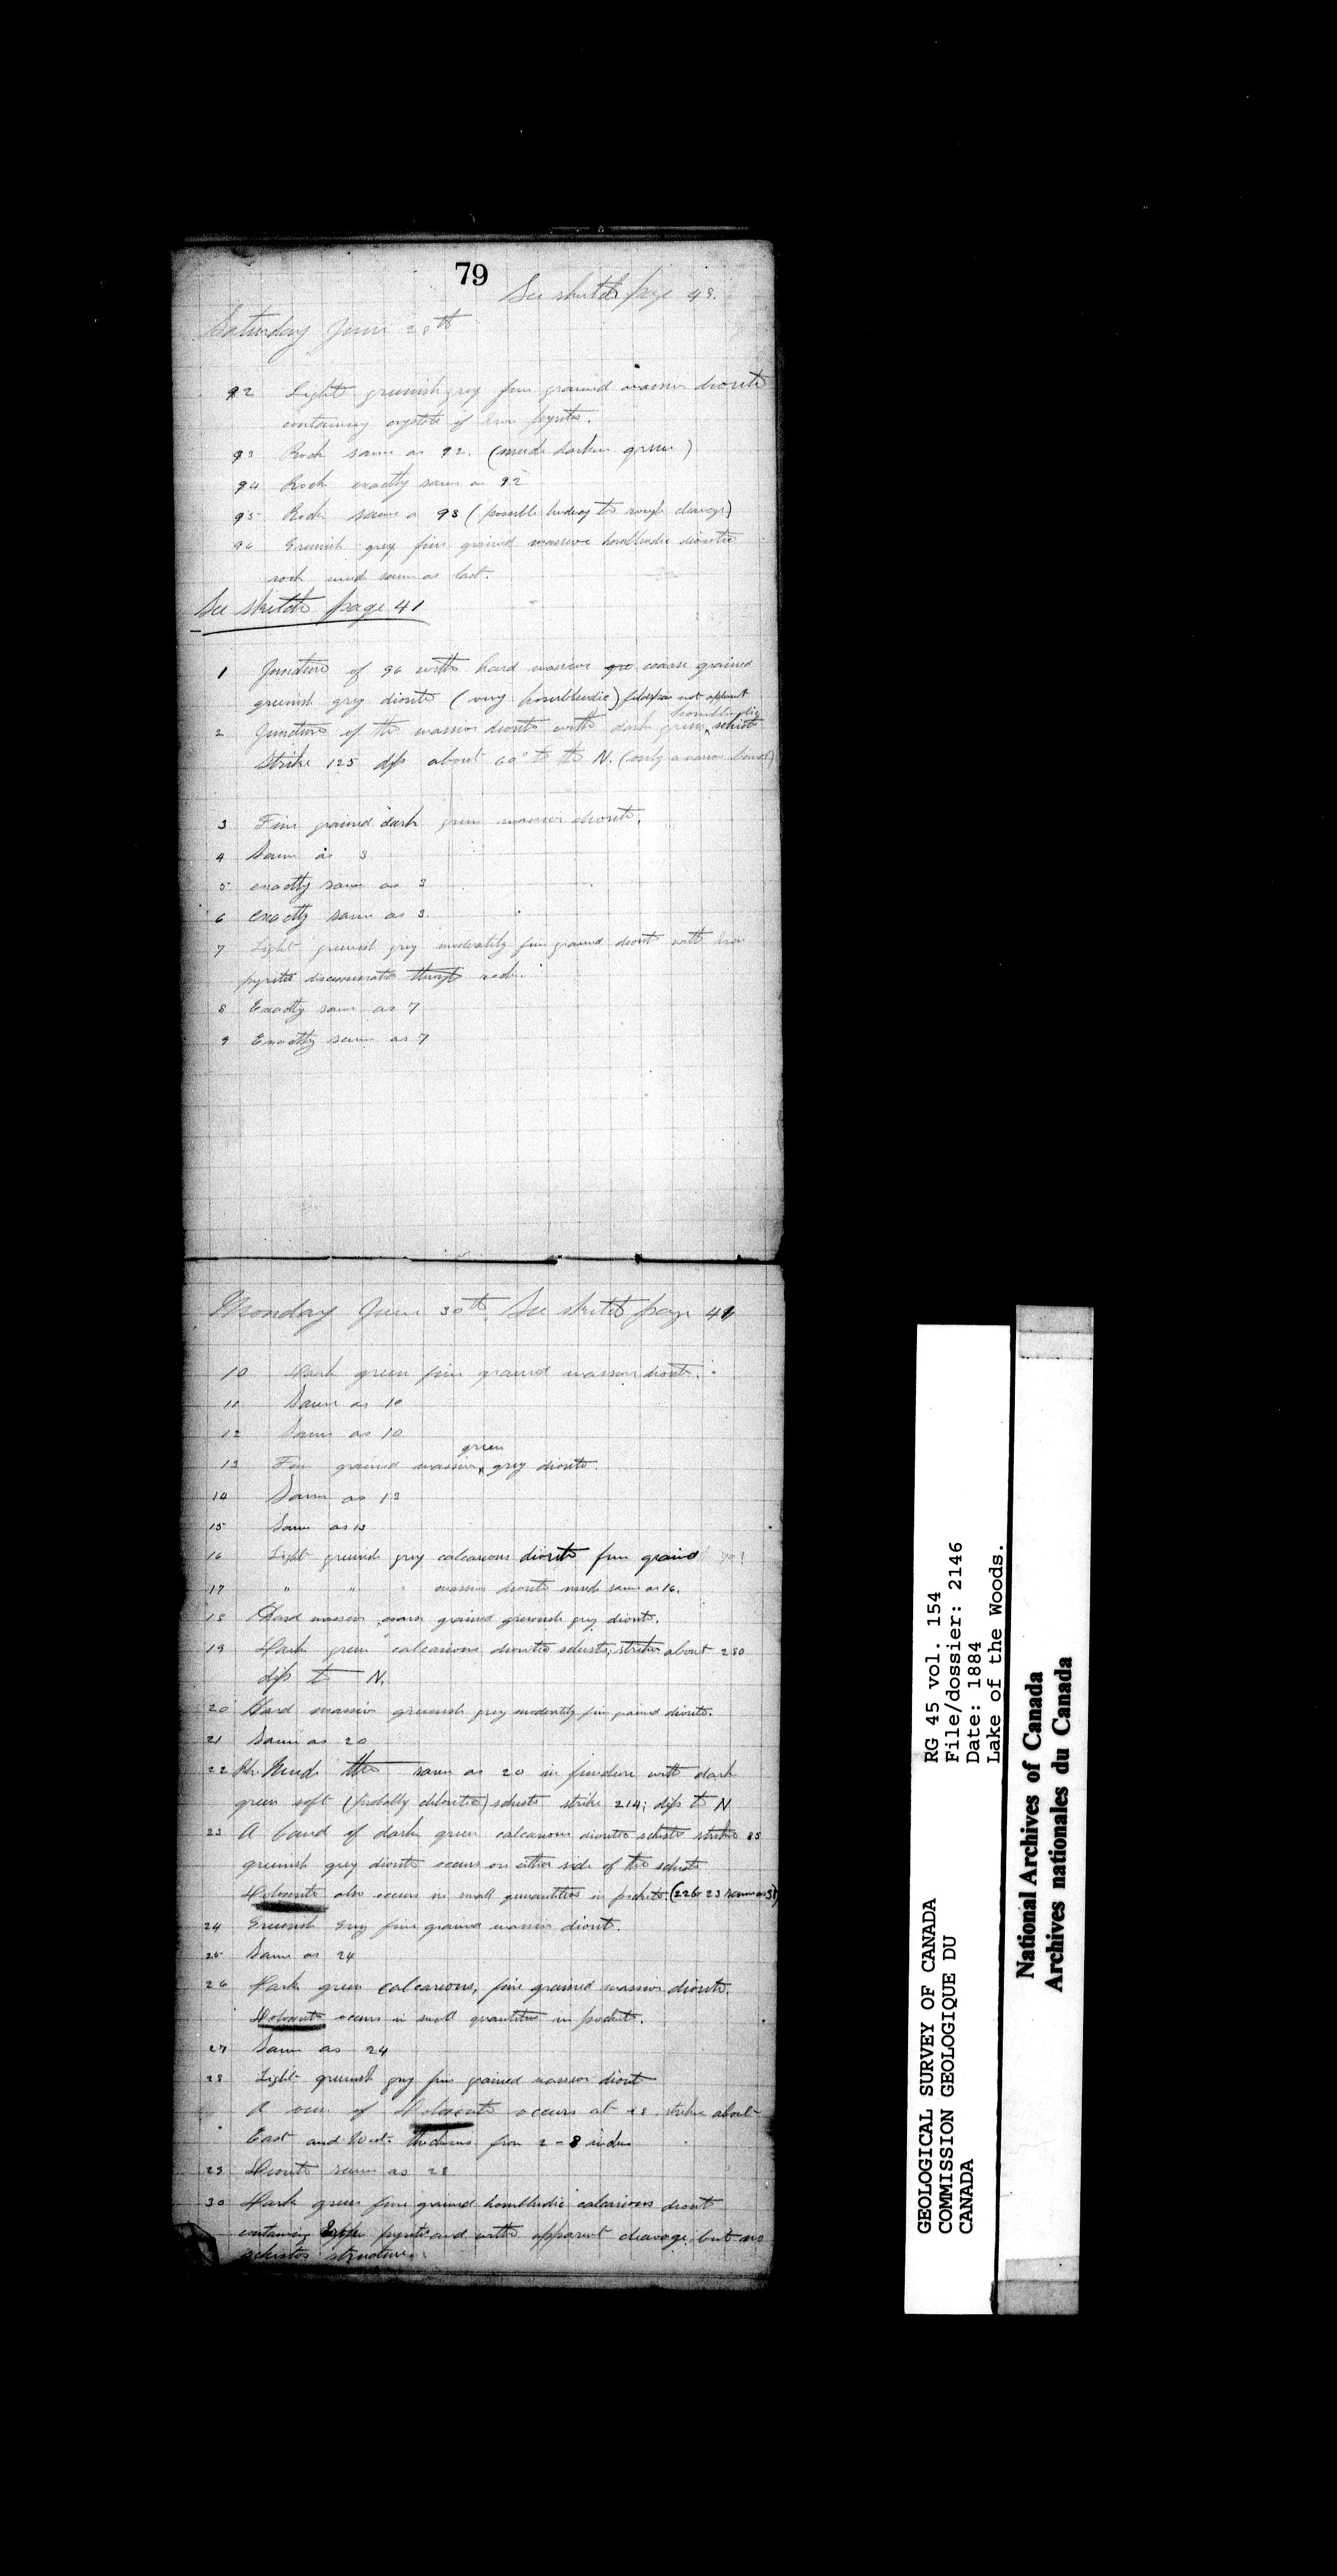 79
See sketch page 43.
Saturday June 28th
92 Light greenish grey fine grained massive diorite
containing crystals of iron pyrites.
93 Rock same as 92. (much darker green)
94 Rock exactly same as 92
95 Rock same as 93 (possible tendency to rough cleavage)
96 Greenish grey fine grained massive hornblendic dioritic
rock much same as last.
See sketch page 41
1 Juncture of 96 with hard massive coarse grained
greenish grey diorite (very hornblendic) feldspar not apparent
hornblendic
2 Juncture of the massive diorite with dark green schists
Strike 125 dip about 60° to the N. (only a narrow band)
3 Fine grained dark green massive diorite.
4 Same as 3
5 exactly same as 3
6 exactly same as 3.
7 Light greenish grey moderately fine grained diorite with iron
pyrites disseminated through rock.
8 Exactly same as 7
9 Exactly same as 7
Monday June 30th See sketch page 41
10 Dark green fine grained massive diorite.
11 Same as 10
12 Same as 10
green
13 Fine grained massive grey diorite.
14 Same as 13
15 Same as 13
16 Light greenish grey calcareous diorite fine grained
17 " " " massive diorite much same as 16.
18 Hard massive coarse grained greenish grey diorite.
19 Dark green calcareous dioritic schists; strike about 280
dip to N.
20 Hard massive greenish grey moderately fine grained diorite.
21 Same as 20
22 Much the same as 20 in juncture with dark
green soft (probably chloritic) schists strike 214; dip to N
23 A band of dark green calcareous dioritic schists strike 85
greenish grey diorite occurs on either side of the schists
Dolomite also occurs in small quantities in pockets. (22 & 23 same as 31)
24 Greenish grey fine grained massive diorite.
25 Same as 24
26 Dark green calcareous, fine grained massive diorite.
Dolomite occurs in small quantities in pockets.
27 Same as 24
28 Light greenish grey fine grained massive diorite
A vein of Dolomite occurs at 28. strike about
East and West. thickness from 2-8 inches
29 Diorite same as 28
30 Dark green fine grained hornblendic calcareous diorite
containing copper pyrites and with apparent cleavage but no
schistose structure.
GEOLOGICAL SURVEY OF CANADA
COMMISSION GEOLOGIQUE DU
CANADA
RG 45 vol. 154
File/dossier: 2146
Date: 1884
Lake of the Woods.
National Archives of Canada
Archives nationales du Canada